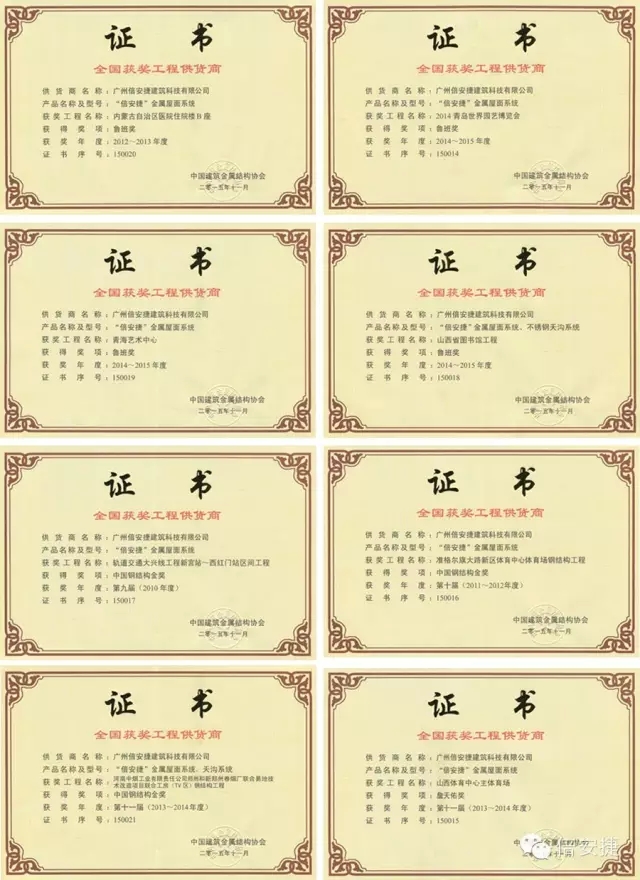 证 书
全国获奖工程供货商
供货商名称：广州倍安捷建筑科技有限公司
产品名称及型号：“倍安捷”金属屋面系统
获奖工程名称：内蒙古自治区医院住院楼B座
获得奖项：鲁班奖
获奖年度：2012～2013年度
证书序号：150020
中国建筑金属结构协会
二〇一五年十一月
证 书
全国获奖工程供货商
供货商名称：广州倍安捷建筑科技有限公司
产品名称及型号：“倍安捷”金属屋面系统
获奖工程名称：2014青岛世界园艺博览会
获得奖项：鲁班奖
获奖年度：2014～2015年度
证书序号：150014
中国建筑金属结构协会
二〇一五年十一月
证 书
全国获奖工程供货商
供货商名称：广州倍安捷建筑科技有限公司
产品名称及型号：“倍安捷”金属屋面系统
获奖工程名称：青海艺术中心
获得奖项：鲁班奖
获奖年度：2014～2015年度
证书序号：150019
中国建筑金属结构协会
二〇一五年十一月
证 书
全国获奖工程供货商
供货商名称：广州倍安捷建筑科技有限公司
产品名称及型号：“倍安捷”金属屋面系统、不锈钢天沟系统
获奖工程名称：山西省图书馆工程
获得奖项：鲁班奖
获奖年度：2014～2015年度
证书序号：150018
中国建筑金属结构协会
二〇一五年十一月
证 书
全国获奖工程供货商
供货商名称：广州倍安捷建筑科技有限公司
产品名称及型号：“倍安捷”金属屋面系统
获奖工程名称：轨道交通大兴线工程新宫站～西红门站区间工程
获得奖项：中国钢结构金奖
获奖年度：第九届（2010年度）
证书序号：150017
中国建筑金属结构协会
二〇一五年十一月
证 书
全国获奖工程供货商
供货商名称：广州倍安捷建筑科技有限公司
产品名称及型号：“倍安捷”金属屋面系统
获奖工程名称：准格尔旗大路新区体育中心体育场钢结构工程
获得奖项：中国钢结构金奖
获奖年度：第十届（2011～2012年度）
证书序号：150016
中国建筑金属结构协会
二〇一五年十一月
证 书
全国获奖工程供货商
供货商名称：广州倍安捷建筑科技有限公司
产品名称及型号：“倍安捷”金属屋面系统、天沟系统
获奖工程名称：河南中烟工业有限责任公司郑州和新郑州卷烟厂联合易地技
术改造项目联合工房（TV区）钢结构工程
获得奖项：中国钢结构金奖
获奖年度：第十一届（2013～2014年度）
证书序号：150021
中国建筑金属结构协会
二〇一五年十一月
证 书
全国获奖工程供货商
供货商名称：广州倍安捷建筑科技有限公司
产品名称及型号：“倍安捷”金属屋面系统
获奖工程名称：山西体育中心主体育场
获得奖项：詹天佑奖
获奖年度：第十一届（2013～2014年度）
证书序号：150015
中国建筑金属结构协会
倍安捷